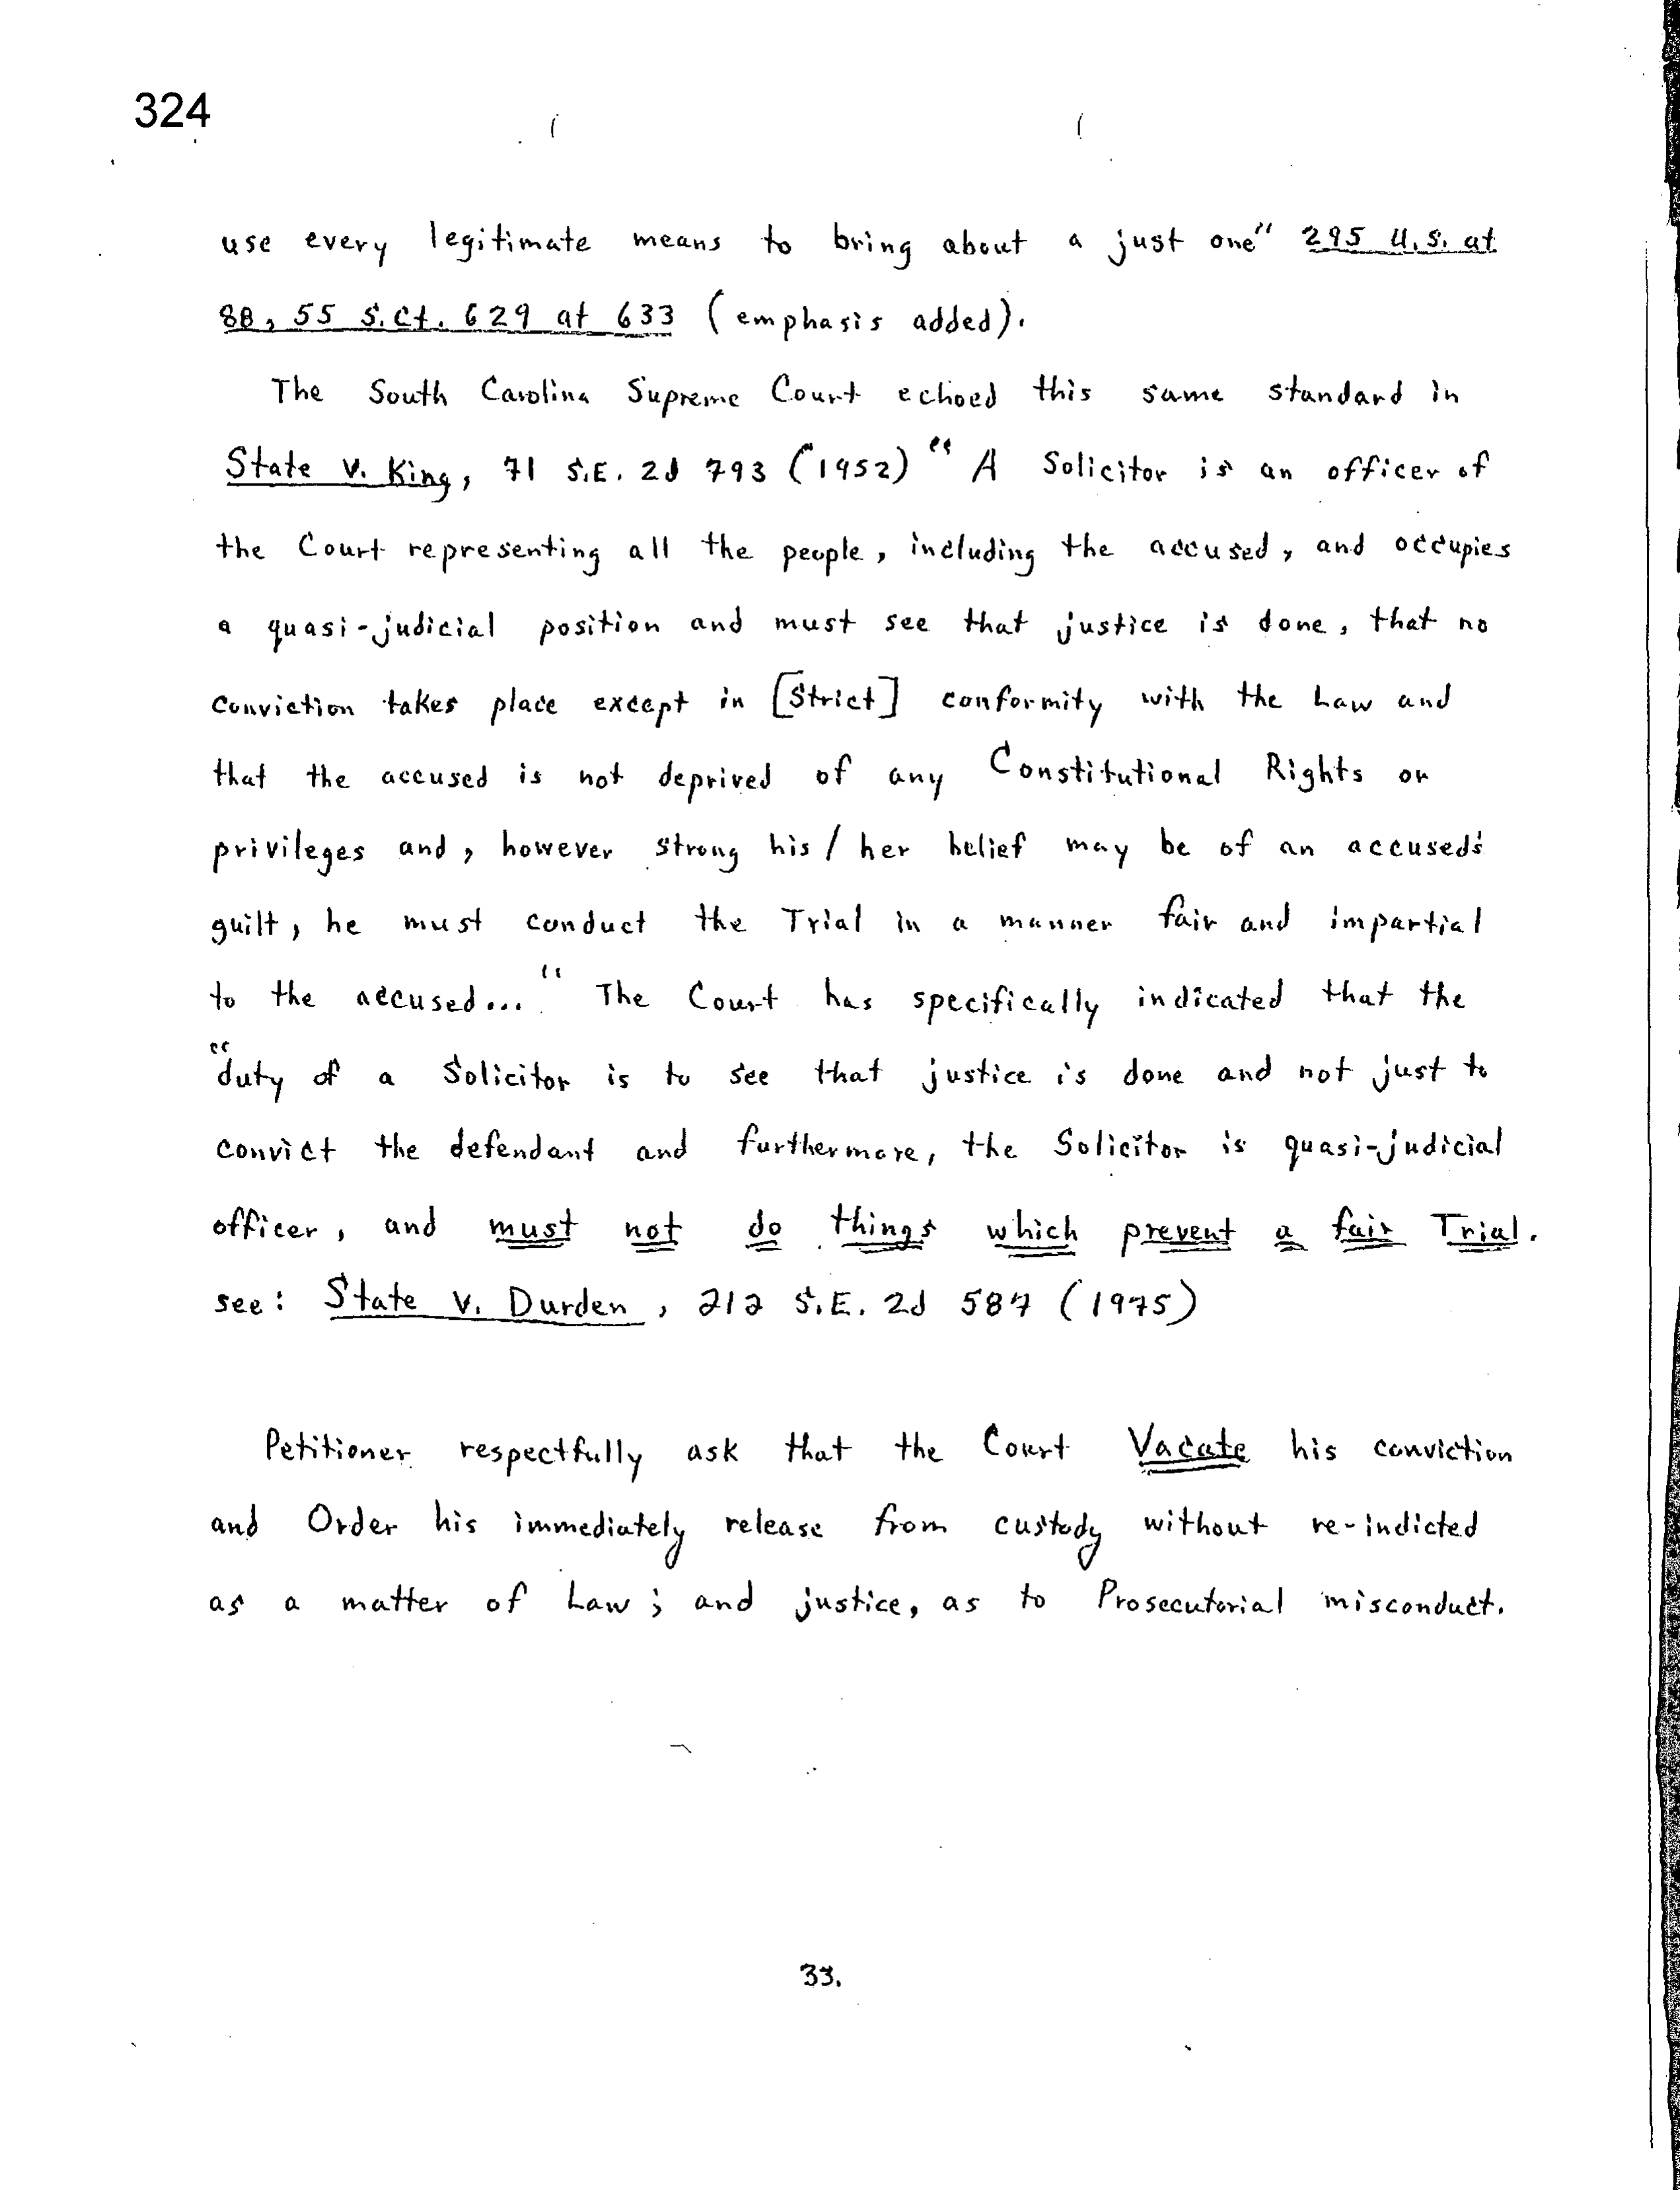 324
use every legitimate means to bring about a just one" 295 U.S. at
88, 55 S.Ct. 629 at 633 (emphasis added).
The South Carolina Supreme Court echoed this same standard in
State v. King, 71 S.E. 2d 793 (1952) "A Solicitor is an officer of
the Court representing all the people, including the accused, and occupies
a quasi-judicial position and must see that justice is done, that no
conviction takes place except in [Strict] conformity with the Law and
that the accused is not deprived of any Constitutional Rights or
privileges and, however strong his/her belief may be of an accused's
guilt, he must conduct the Trial in a manner fair and impartial
to the accused..." The Court has specifically indicated that the
"duty of a Solicitor is to see that justice is done and not just to
convict the defendant and furthermore, the Solicitor is quasi-judicial
officer, and must not do things which prevent a fair Trial.
see: State v. Durden, 212 S.E. 2d 587 (1975)
Petitioner respectfully ask that the Court Vacate his conviction
and Order his immediately release from custody without re-indicted
as a matter of Law; and justice, as to Prosecutorial misconduct.
33.